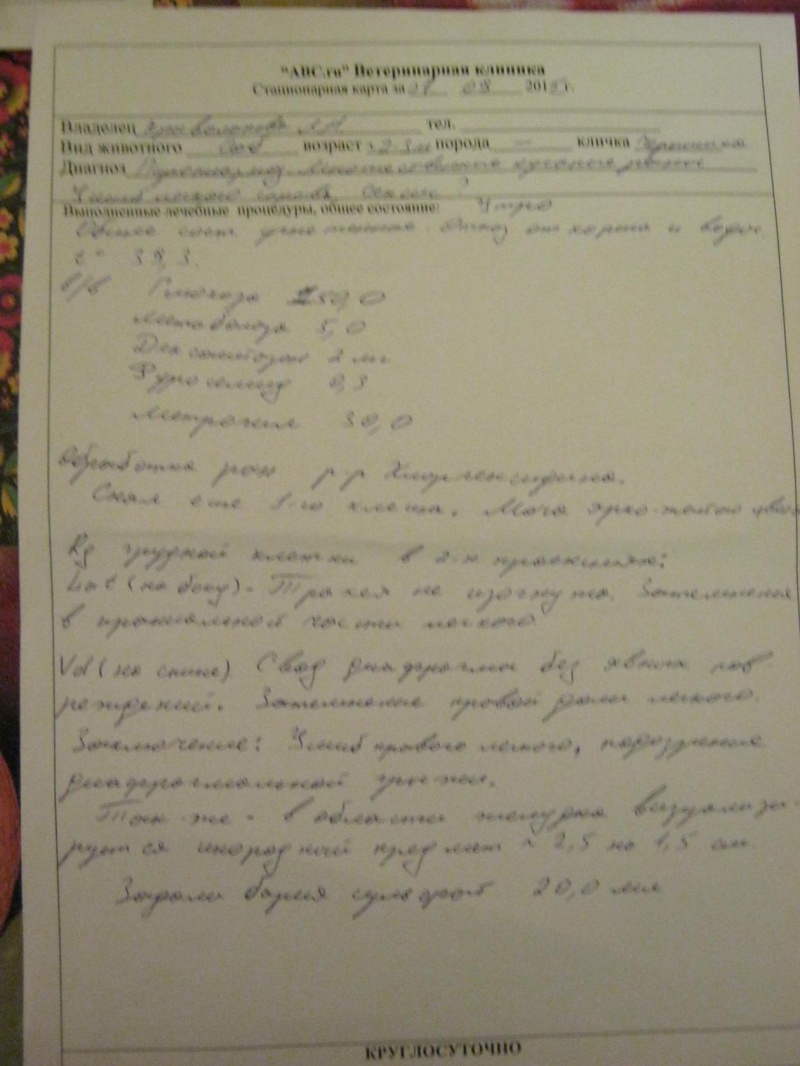 "АВС.ru" Ветеринарная клиника
Стационарная карта за 08 201 г.
Владелец тел.
Вид животного возраст порода — кличка
Диагноз
Ушиб легкого справа. Сепсис ?
Выполненные лечебные процедуры, общее состояние: Утро
Общее сост. угнетенное. Отказ от корма и воды.
t° 38,3.
в/в Глюкоза 50,0
Метаболаза 5,0
Дексаметазон 2 мл
Фуросемид 0,3
Метрогил 30,0
Обработка ран р-р Хлоргексидина.
Снят еще 1-го клеща. Моча ярко-желтого
Rg грудной клетки в 2-х проекциях:
Lat (на боку) - Трахея не изогнута. Затемнения
в краниальной части легкого
Vd (на спине) Свод диафрагмы без явных пов
реждений. Затемнение правой доли легкого.
Заключение: Ушиб правого легкого, подозрение
диафрагмальной грыжи.
Так же - в области желудка визуализи-
руется инородный предмет ~ 2,5 на 1,5 см.
Задали бария сульфат 20,0 мл
КРУГЛОСУТОЧНО